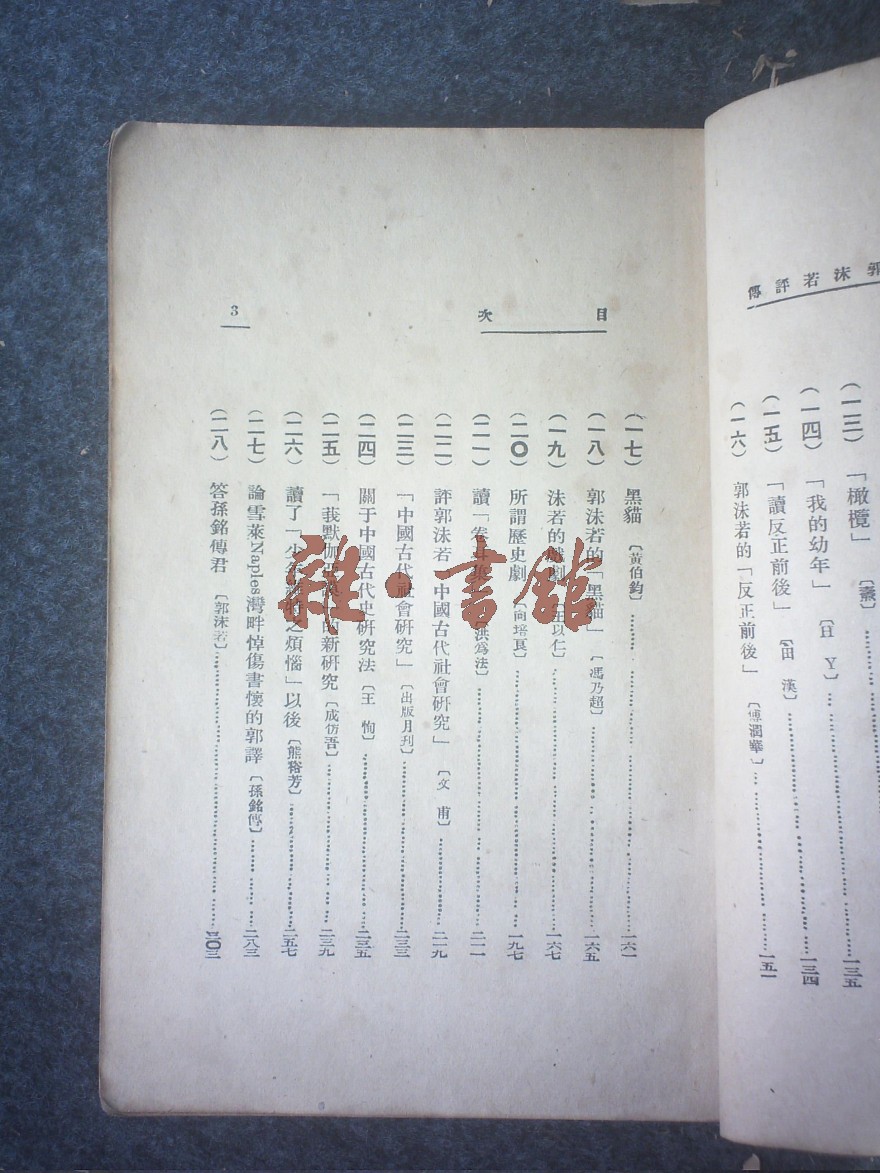 郭沫若評傳
(一三)「橄欖」
(一四)「我的幼年」〔H Y〕……一二五
(一五)「讀反正前後」〔田 漢〕……一三四
(一六)郭沫若的「反正前後」〔傅潤華〕……一五一
目次
(一七)黑貓〔黃伯鈞〕……一六一
(一八)郭沫若的「黑貓」〔馮乃超〕……一六五
(一九)沫若的戲劇〔王以仁〕……一六七
(二〇)所謂歷史劇〔向培良〕……一九七
(二一)讀「卷耳集」〔洪爲法〕……二一一
(二二)評郭沫若「中國古代社會研究」〔文 甫〕……二一九
(二三)「中國古代社會研究」〔出版月刊〕……二三三
(二四)關于中國古代史研究法〔王 恂〕……二三五
(二五)「莪默伽亞謨」的新研究〔成仿吾〕……二三九
(二六)讀了「少年維特之煩惱」以後〔熊裕芳〕……二五七
(二七)論雪萊Naples灣畔悼傷書懷的郭譯〔孫銘傳〕……二八三
(二八)答孫銘傳君〔郭沫若〕……三〇三
3
雜·書舘